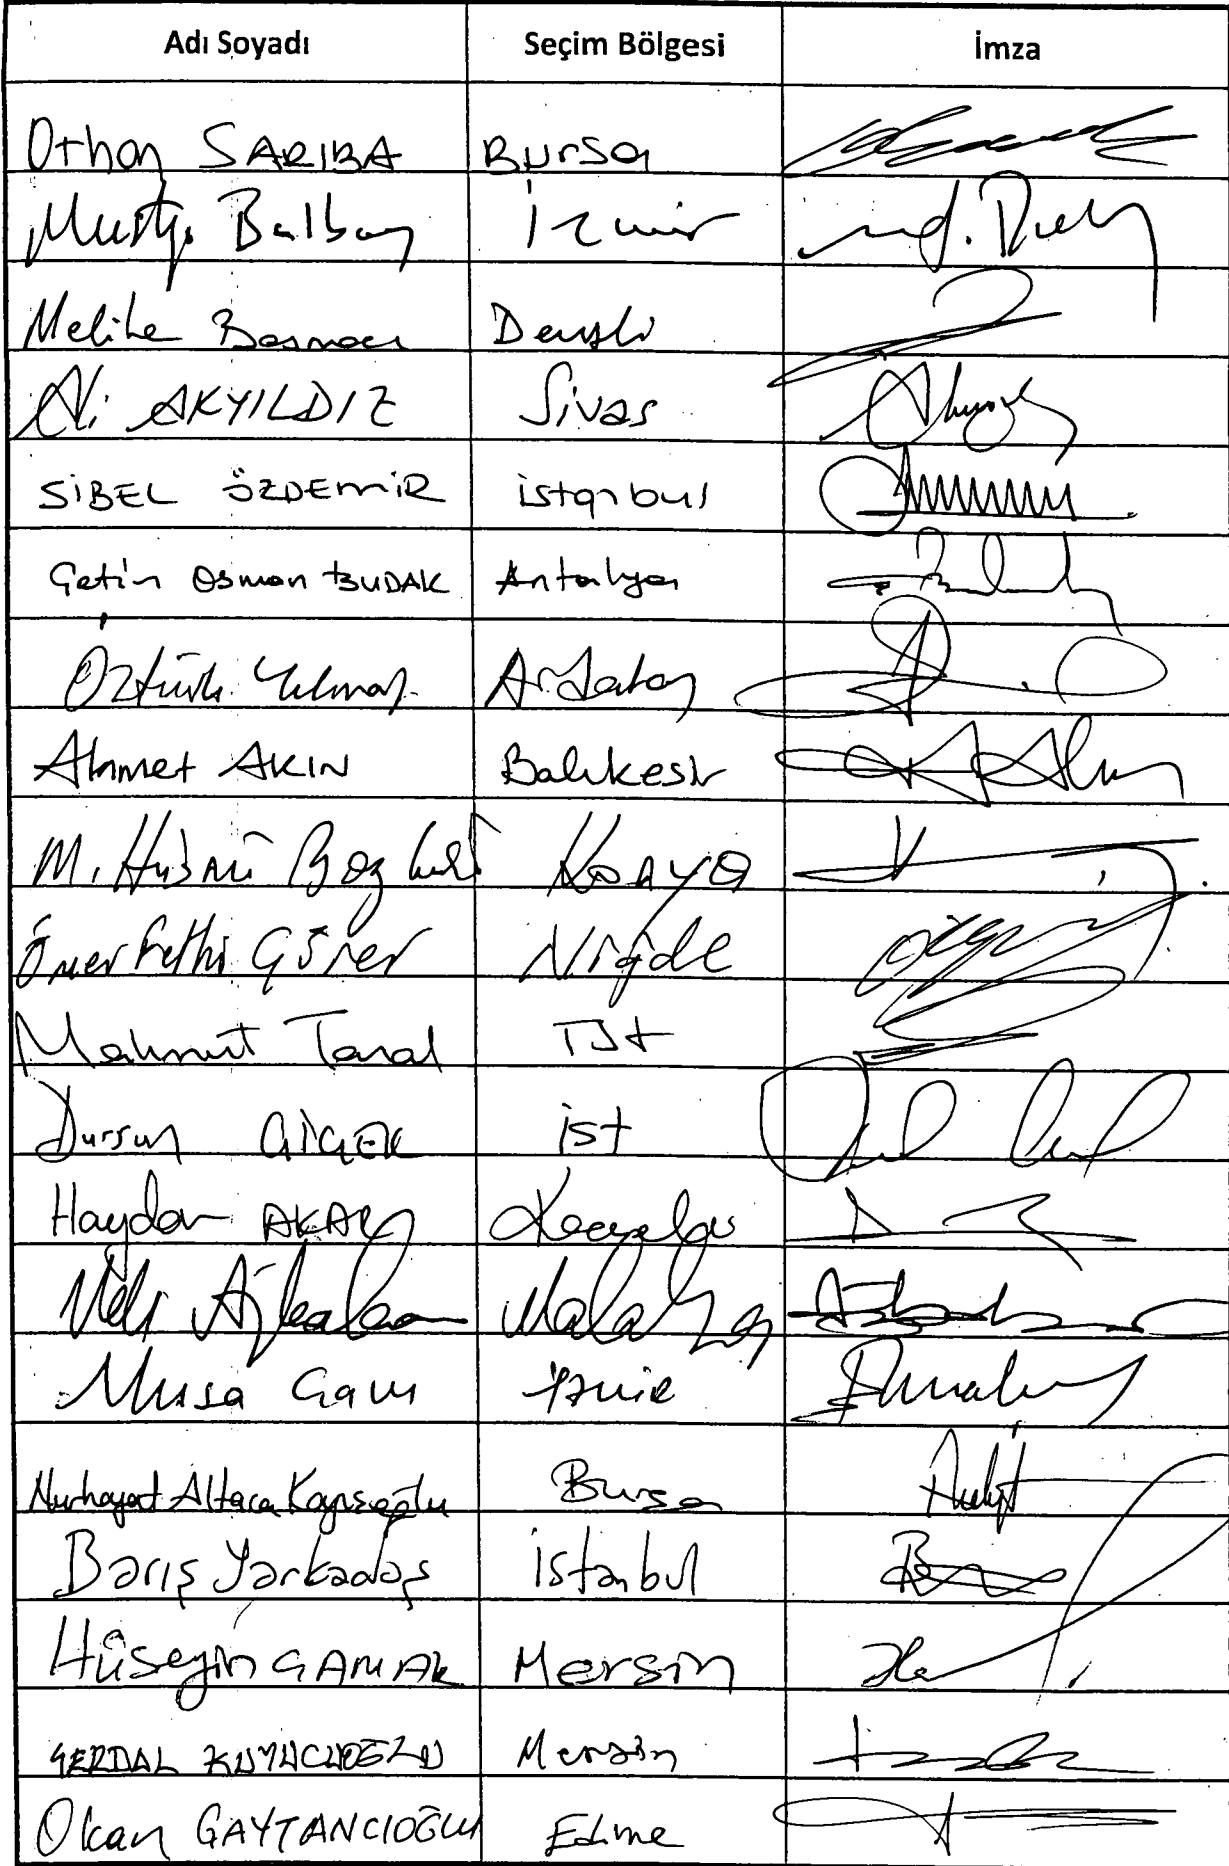 Adı Soyadı Seçim Bölgesi İmza
Orhan SARIBA Bursa
Mustafa Balbay İzmir
Melike Basmacı Denizli
Ali AKYILDIZ Sivas
SİBEL ÖZDEMİR istanbul
Çetin Osman BUDAK Antalya
Öztürk Yılmaz Ardahan
Ahmet AKIN Balıkesir
M. Hüsnü Bozkurt Konya
Ömer Fethi Gürer Niğde
Mahmut Tanal İst
Dursun ÇİÇEK ist
Haydar AKAR Kocaeli
Veli Ağbaba Malatya
Musa Çam İzmir
Nurhayat Altaca Kayışoğlu Bursa
Barış Yarkadaş istanbul
Hüseyin ÇAMAK Mersin
SERDAL KUYUCUOĞLU Mersin
Okan GAYTANCIOĞLU Edirne